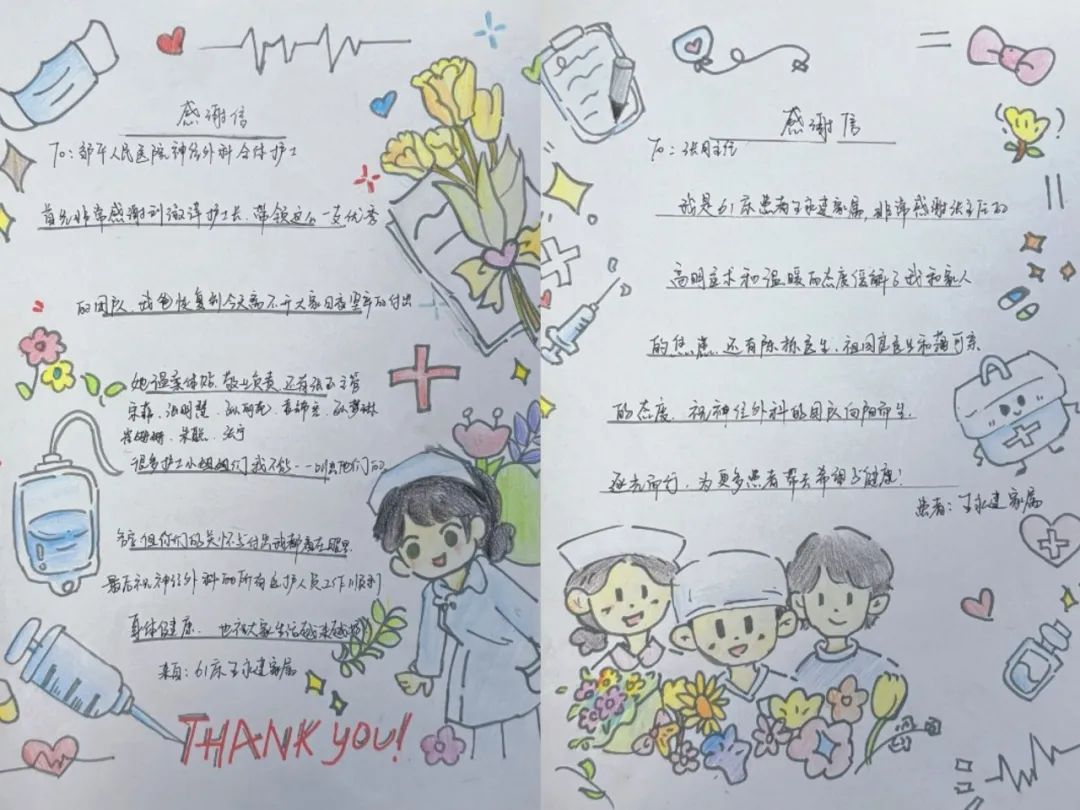 感谢信
To：邹平人民医院神经外科全体护士
首先非常感谢刘淑泽护士长，带领这么一支优秀
的团队，我爸恢复到今天离不开大家日夜坚牢的付出
她温柔体贴、敬业负责，还有张主管
宋莉、张明慧、
朱聪、张宁
很多护士小姐姐们我不能一一叫出他们的
名字但你们的关怀与付出我都看在眼里
最后祝神经外科的所有医护人员工作顺利
身体健康、也祝大家生活越来越好
来自：61床王永建家属
THANK YOU!
感谢信
To：张主任
我是61床患者王永建家属，非常感谢张主任的
高明医术和温暖的态度缓解了我和家人
的焦虑，还有陈栋医生、祖国庆医生和蔼可亲
的态度，祝神经外科的团队向阳而生
逐光而行，为更多患者带去希望与健康！
患者：王永建家属